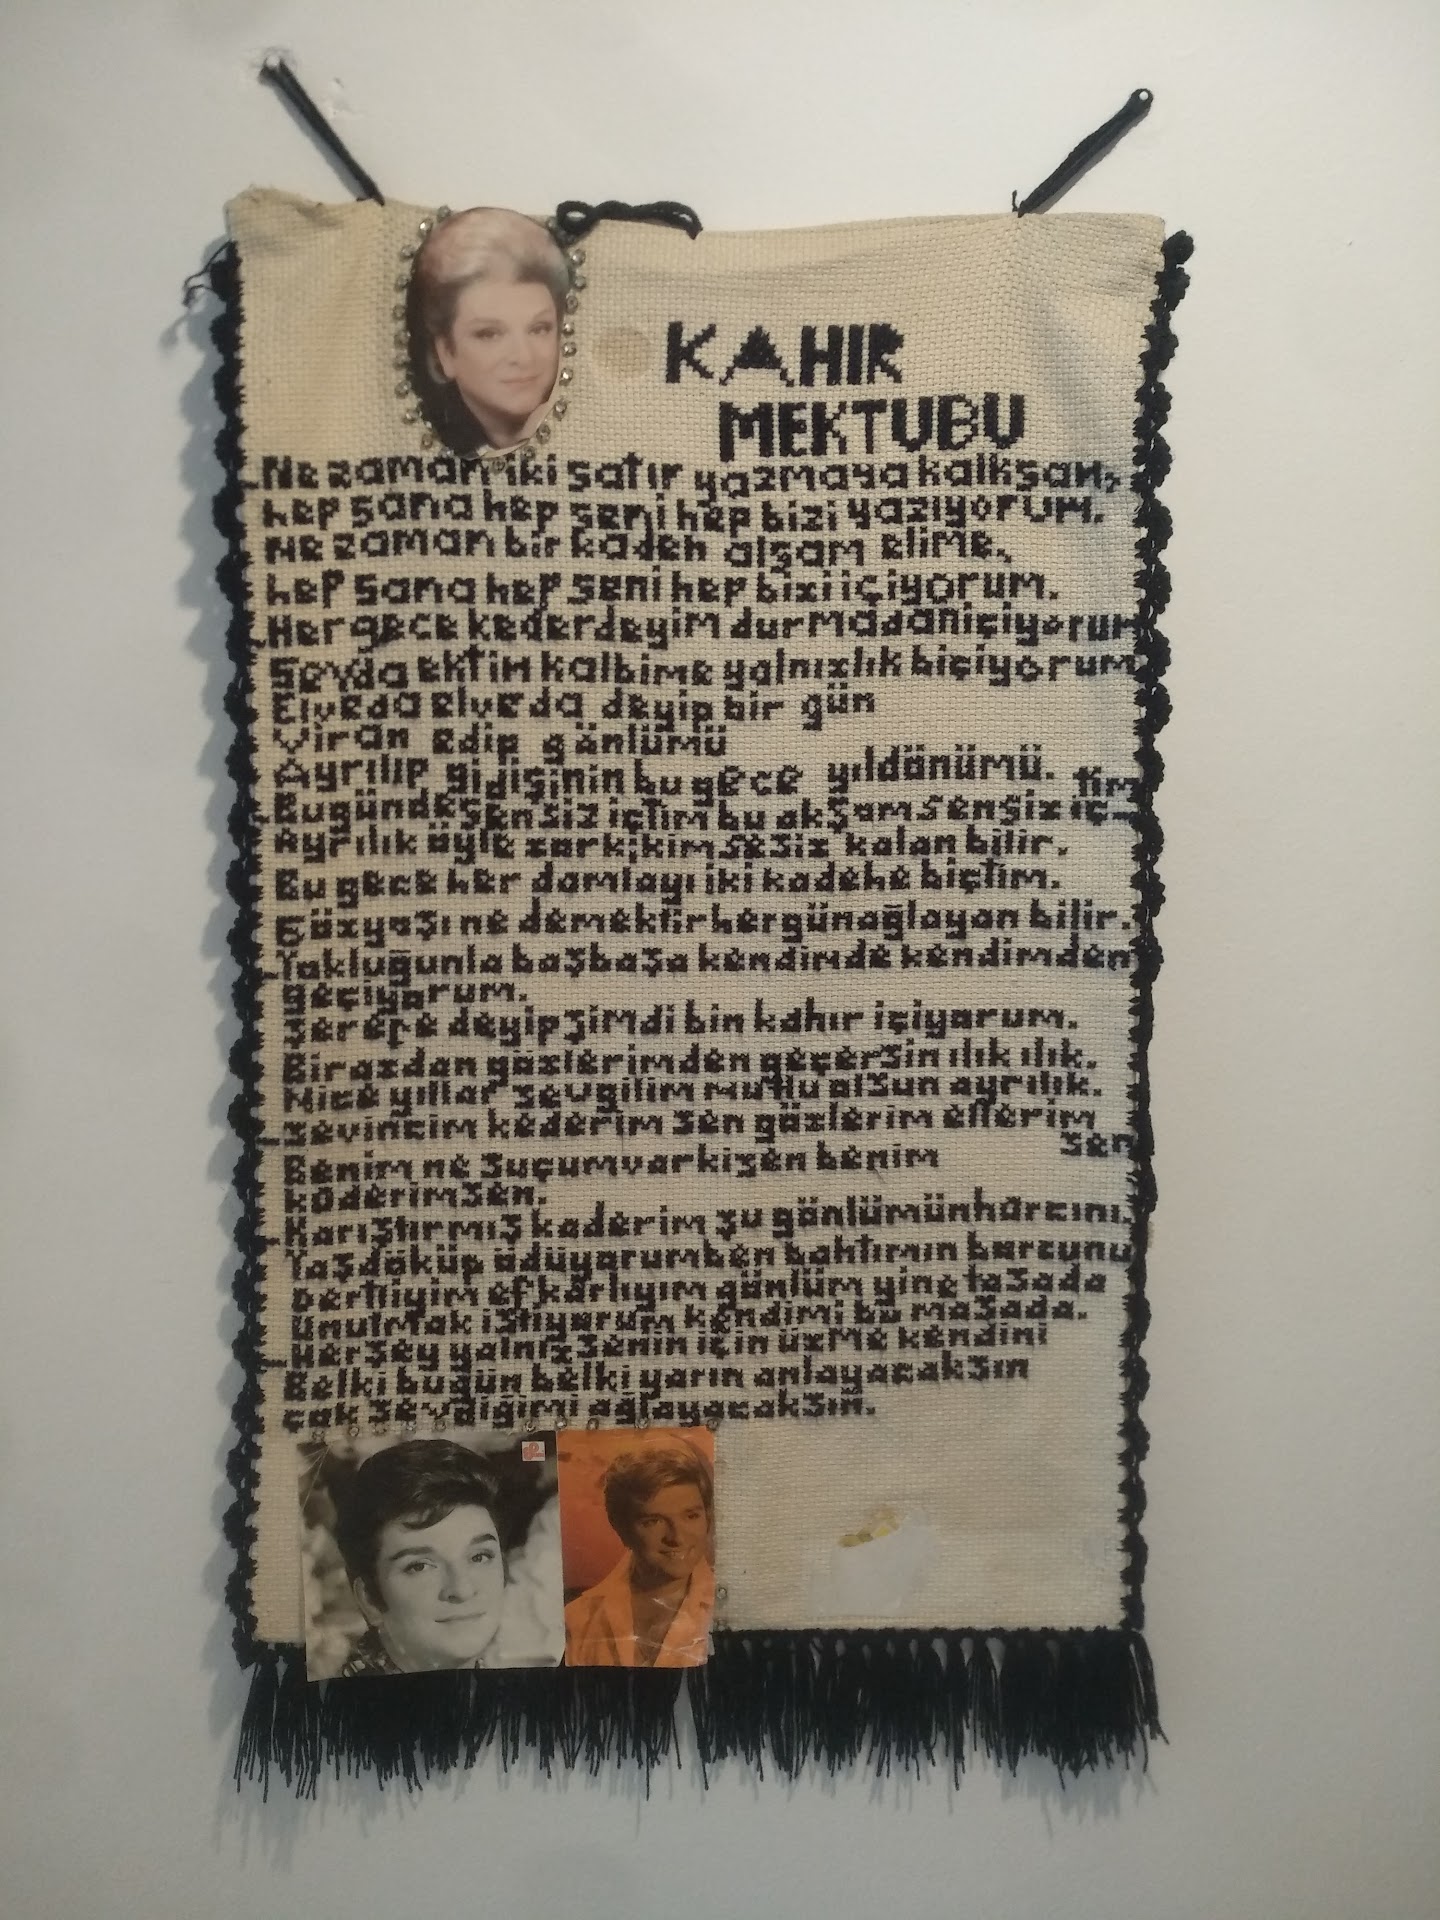 KAHIR
MEKTUBU
Ne zaman iki satır yazmaya kalksam,
hep sana hep seni hep bizi yazıyorum.
Ne zaman bir kadeh alsam elime,
hep sana hep seni hep bizi içiyorum.
Her gece kederdeyim durmadan içiyorum
Sevda ektim kalbime yalnızlık biçiyorum
Elveda elveda deyip bir gün
Viran edip gönlümü
Ayrılıp gidişinin bu gece yıldönümü.
Bugünde sensiz içtim bu akşam sensiz içtim
Ayrılık öyle zorki kimsesiz kalan bilir.
Bu gece her damlayı iki kadehe biçtim.
Gözyaşı ne demektir hergün ağlayan bilir.
Yokluğunla başbaşa kendimde kendimden
geçiyorum.
Şerefe deyip şimdi bin kahır içiyorum.
Birazdan gözlerimden geçersin ılık ılık.
Nice yıllar sevgilim mutlu olsun ayrılık.
Sevincim kederim sen gözlerim ellerim
sen
Benim ne suçum varki sen benim
kaderimsen.
Karıştırmış kaderim şu gönlümün harcını,
Yaş döküp ödüyorum ben bahtımın borcunu
Dertliyim efkarlıyım gönlüm yine tasada
Unutmak istiyorum kendimi bu masada.
Herşey yalnız senin için üzme kendini
Belki bugün belki yarın anlayacaksın